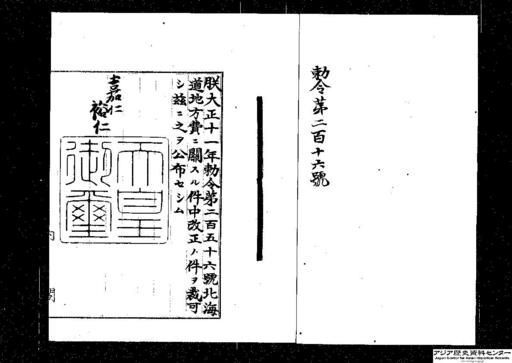 勅令第二百十六號
朕大正十一年勅令第二百五十六號北海
道地方費ニ關スル件中改正ノ件ヲ裁可
シ茲ニ之ヲ公布セシム
嘉仁
裕仁
天皇
御璽
内閣
アジア歴史資料センター
Japan Center for Asian Historical Records